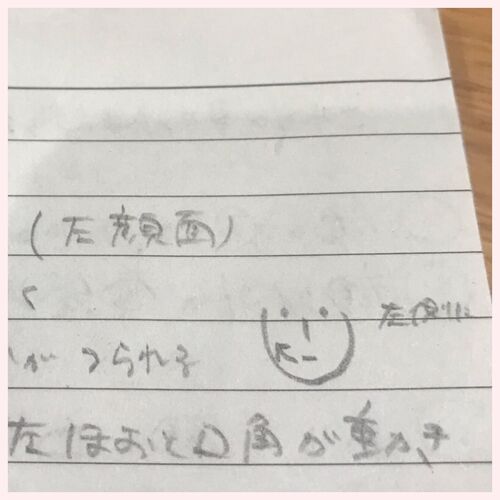 (左顔面)
く
がつられる
左側に
左ほおと口角が重か